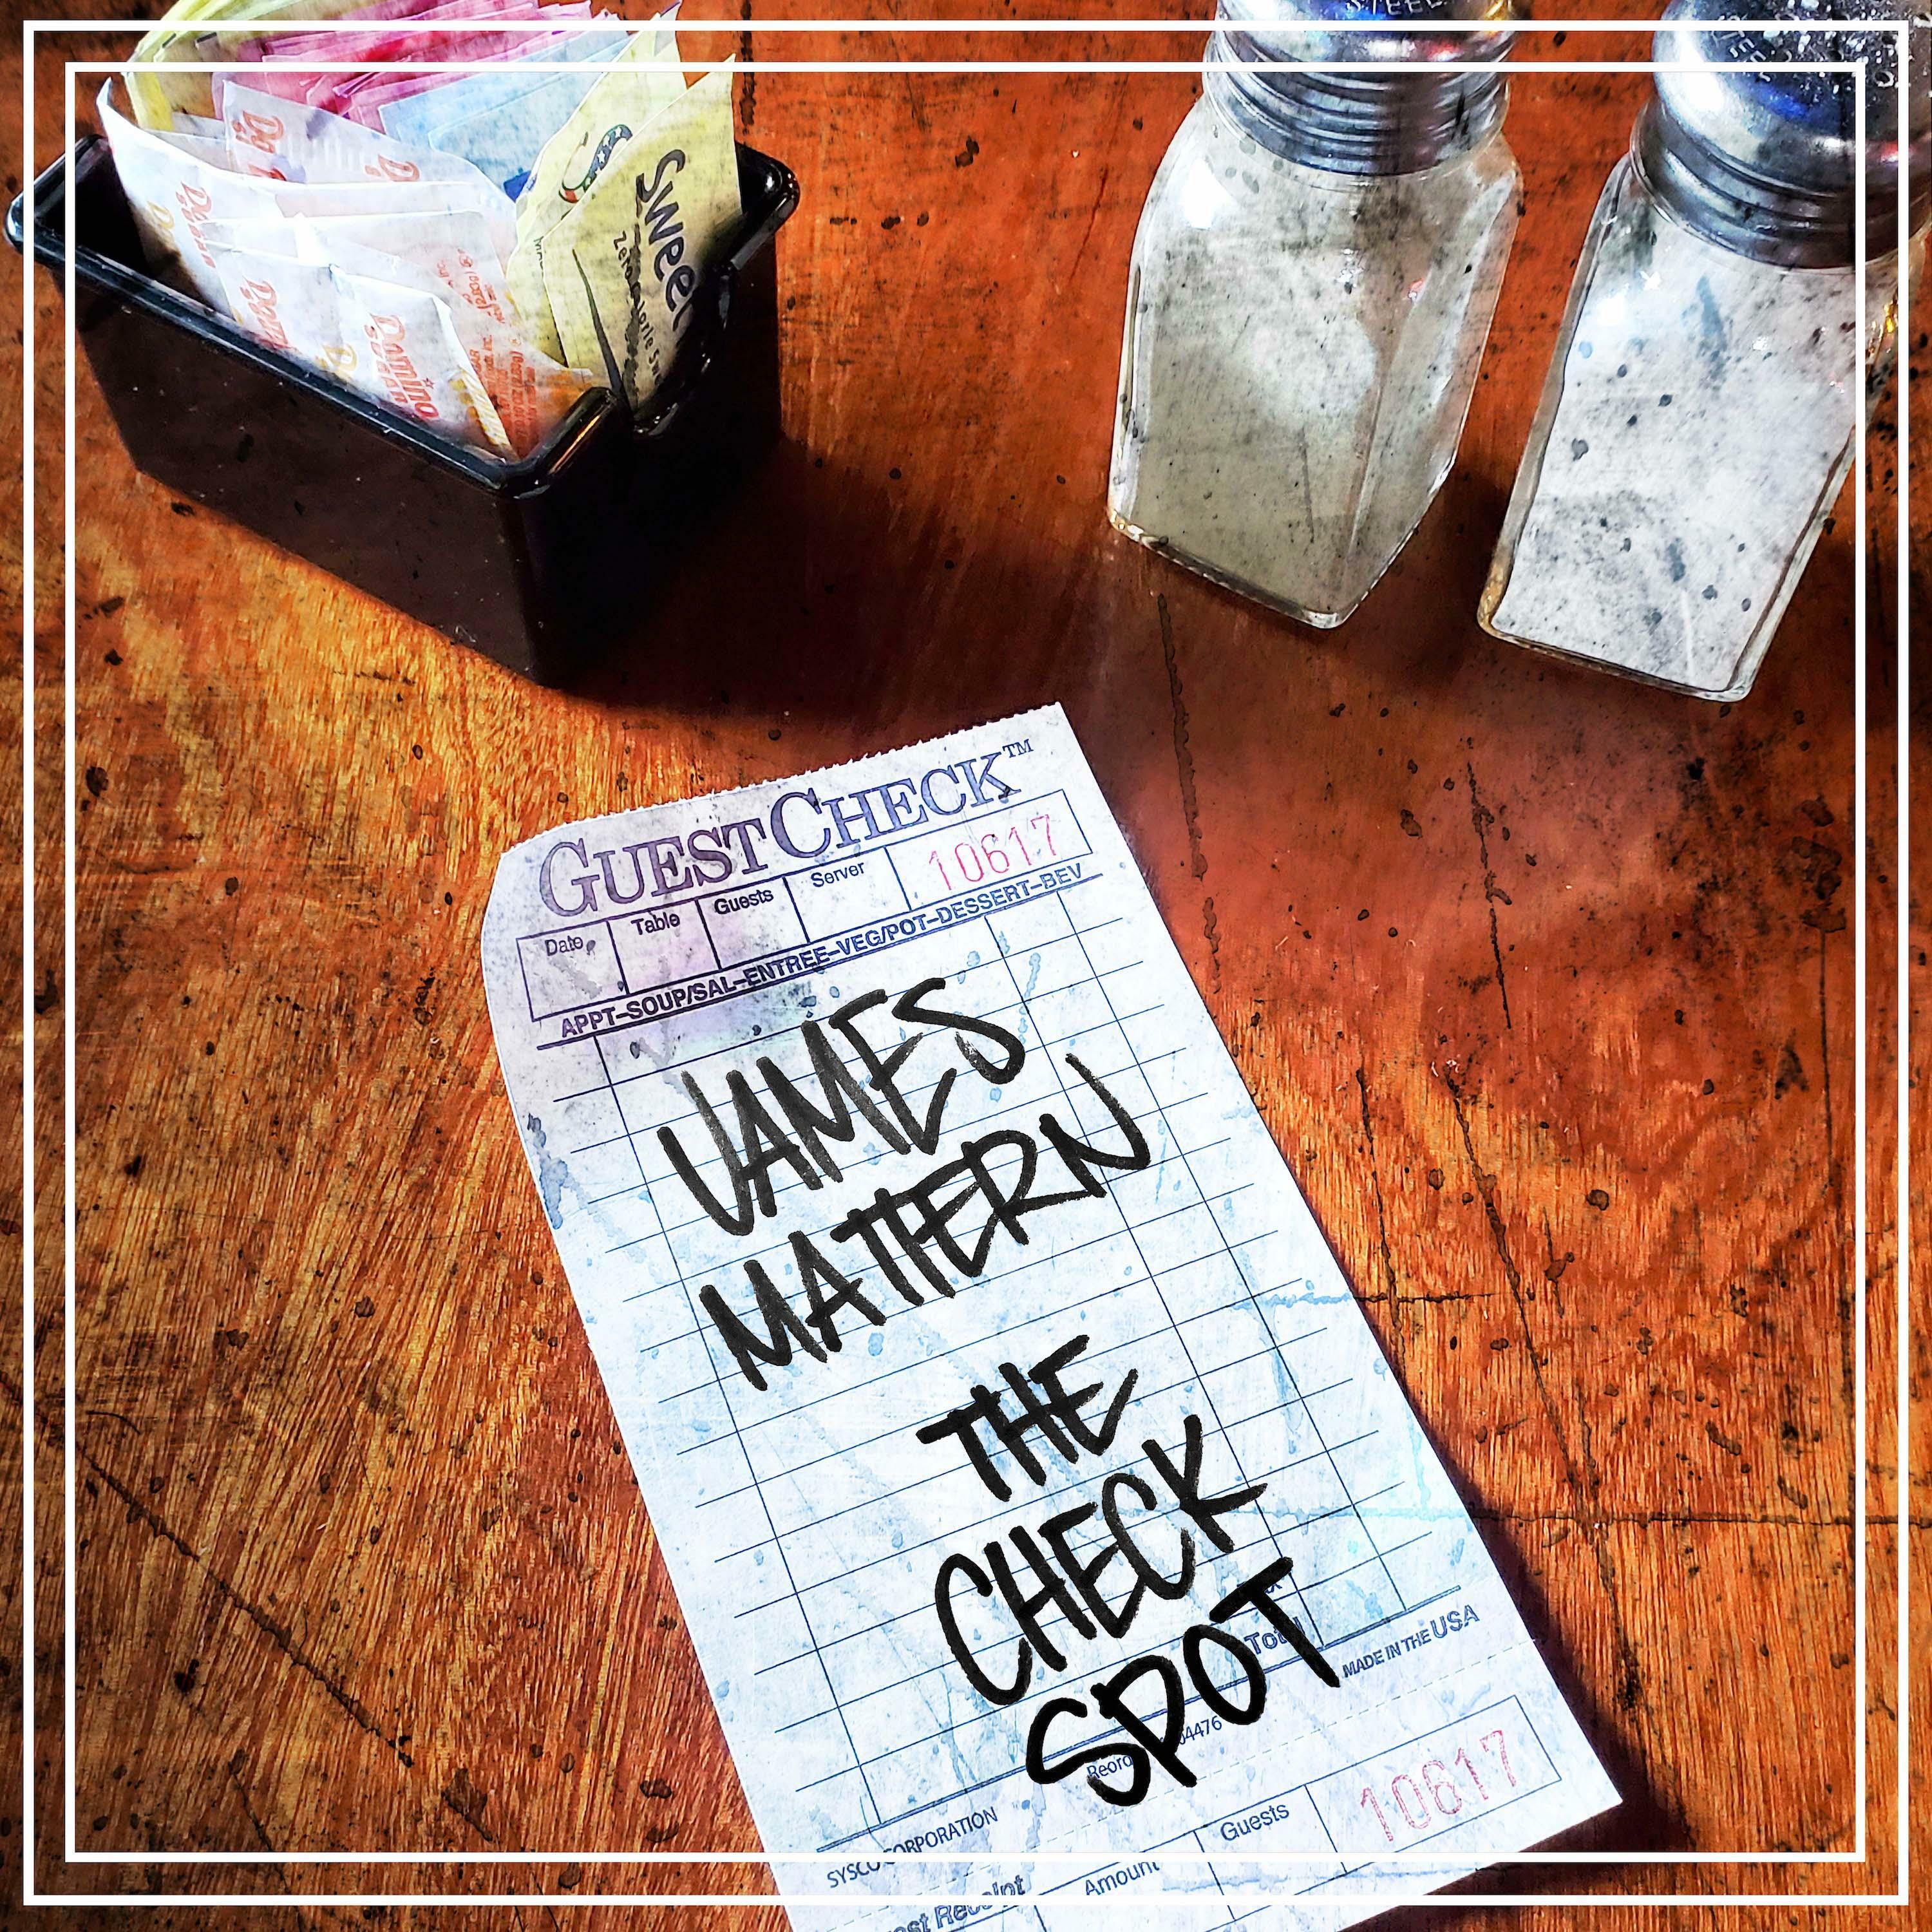 STEEL
STEEL
Domino
Sweet
Zero Calorie Sw
GUEST CHECK™
Date
Table
Guests
Server
10617
APPT–SOUP/SAL–ENTREE–VEG/POT–DESSERT–BEV
JAMES
MATTERN
THE
CHECK
SPOT
Total
MADE IN THE USA
SYSCO CORPORATION
4476
Guests
10617
Amount
Receipt